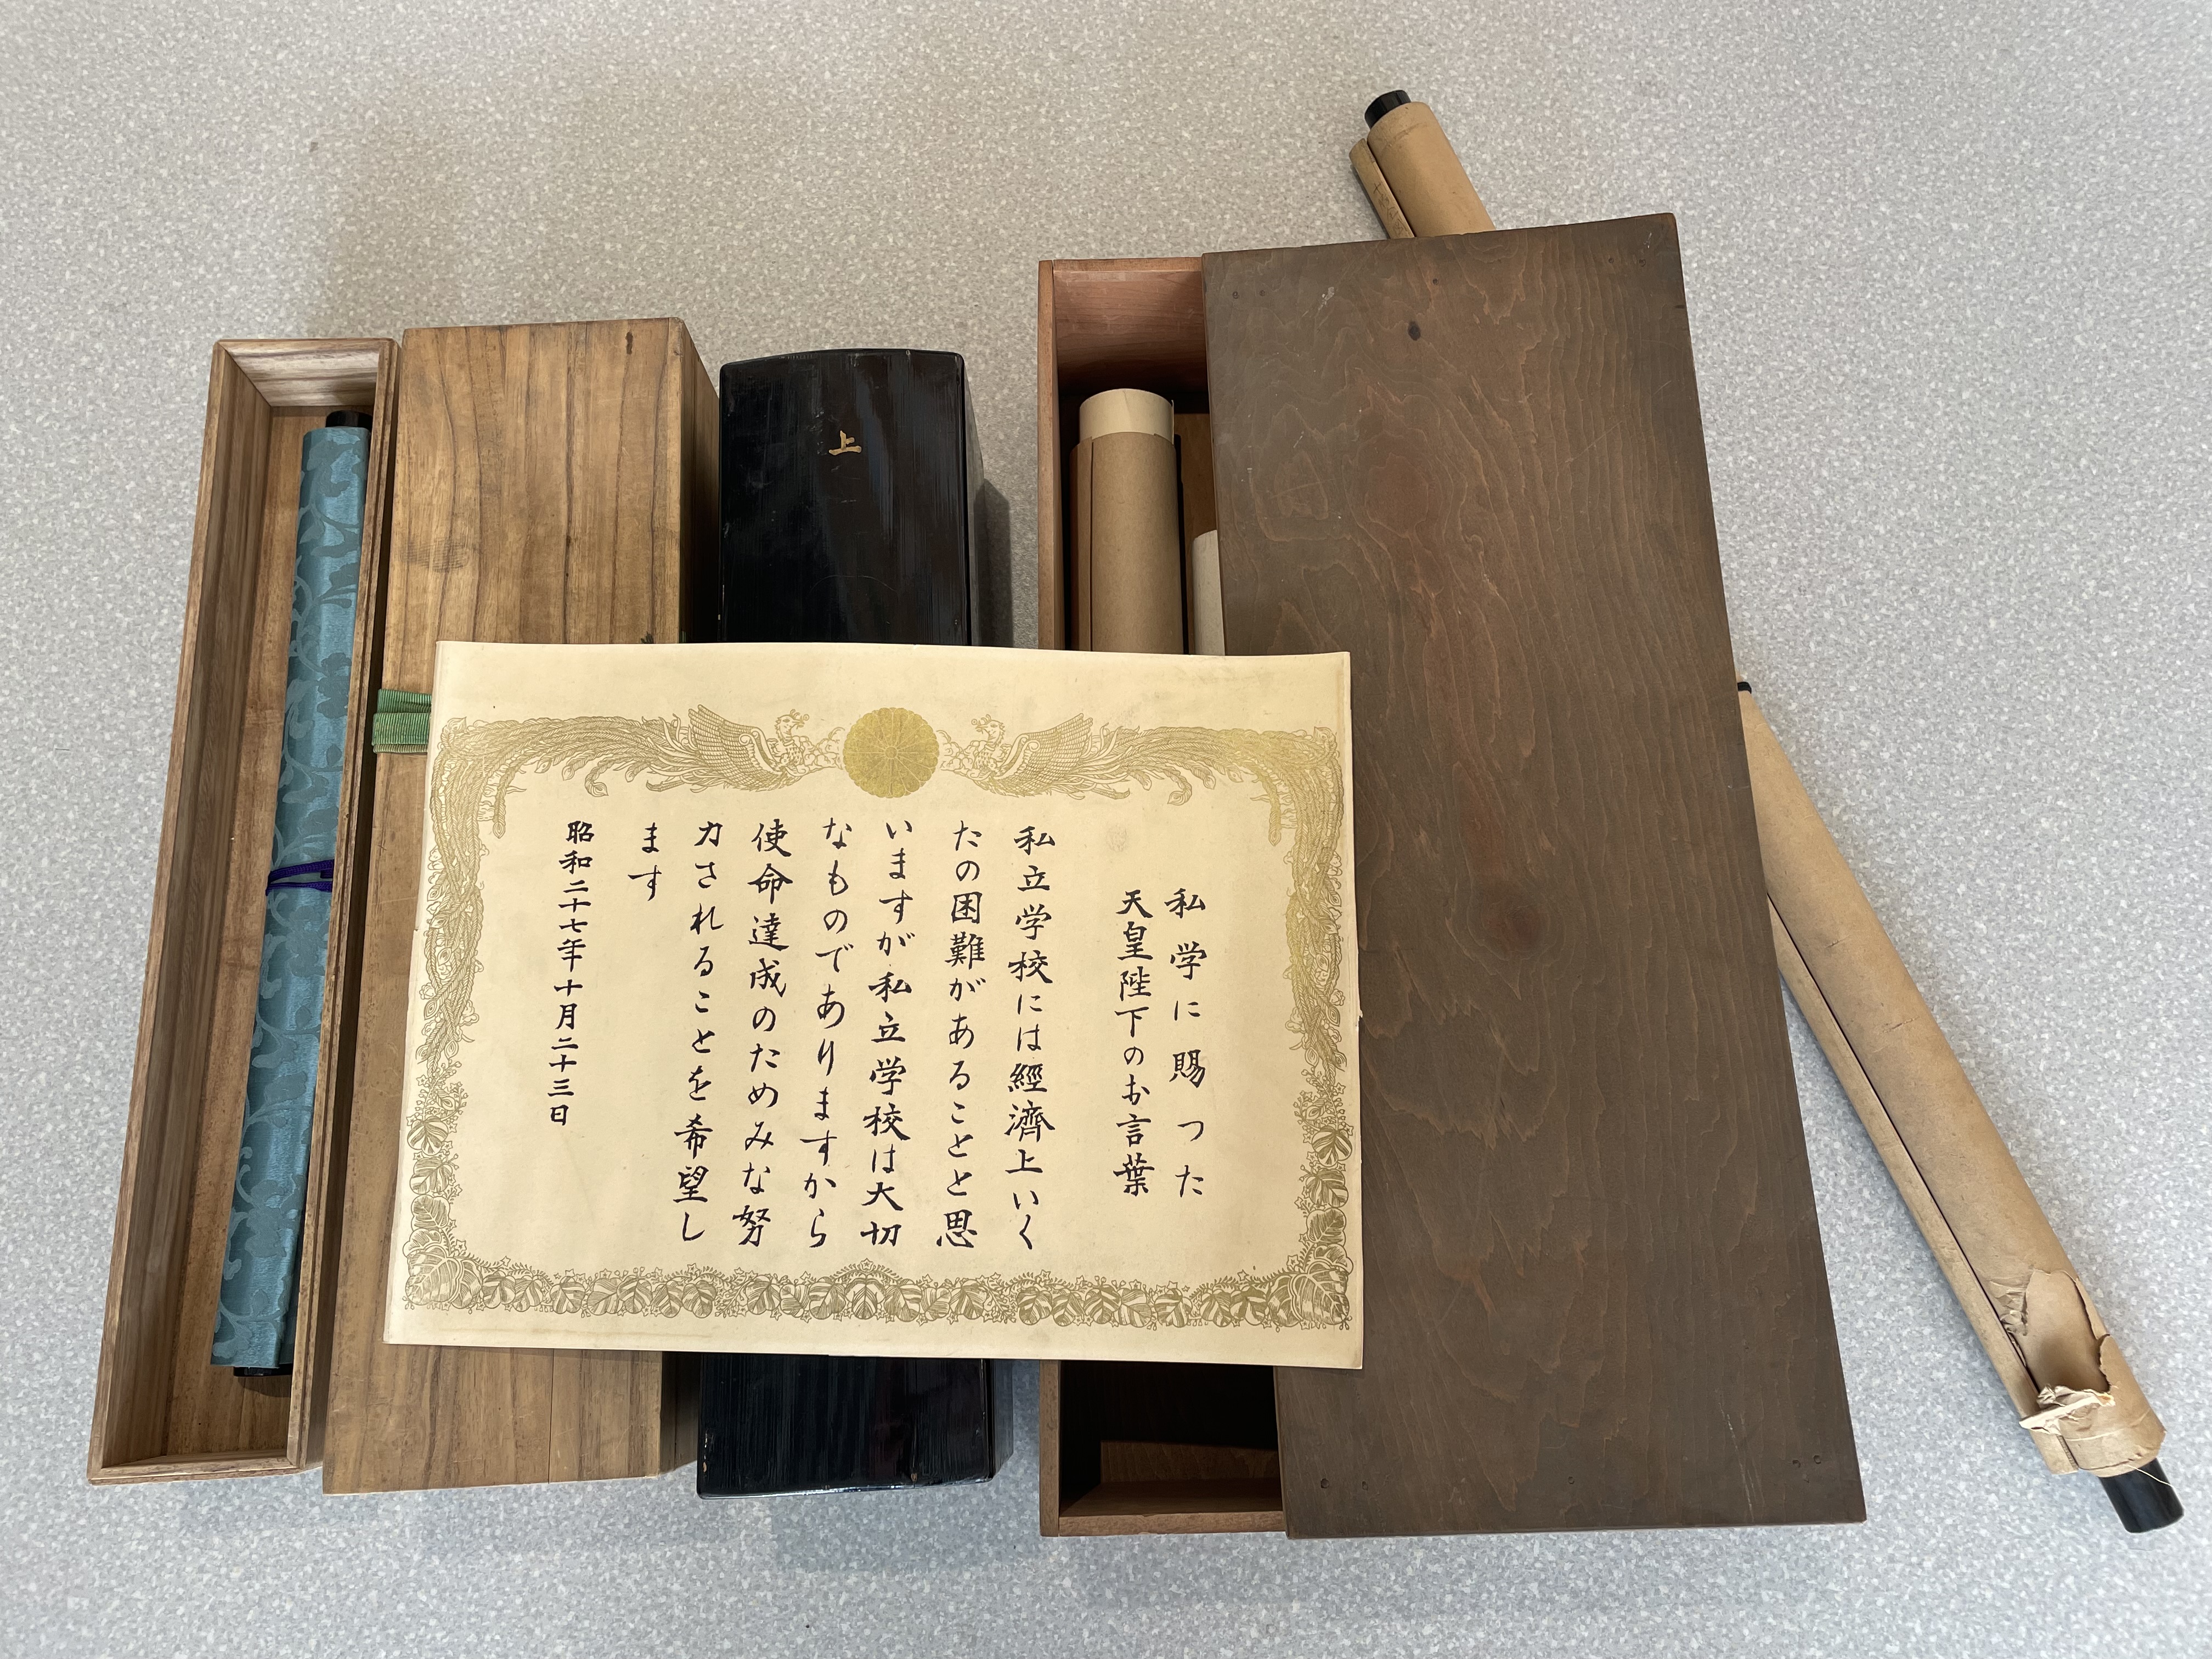 私学に賜つた
天皇陛下のお言葉
私立学校には經濟上いく
たの困難があることと思
いますが私立学校は大切
なものでありますから
使命達成のためみな努
力されることを希望し
ます
昭和二十七年十月二十三日
上